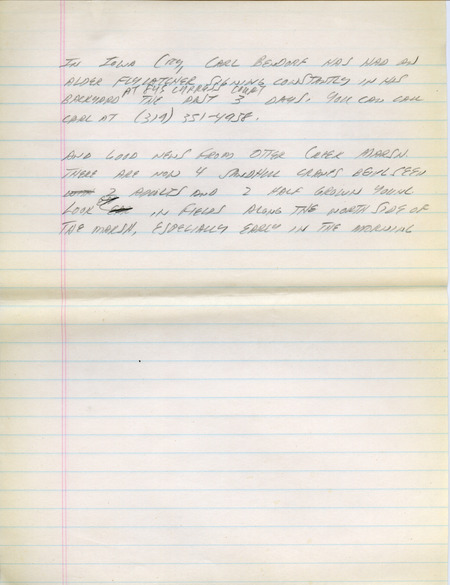 IN IOWA CITY, CARL BENDORF HAS HAD AN
ALDER FLYCATCHER SINGING CONSTANTLY IN HIS
AT CYPRESS COURT
BACKYARD THE PAST 3 DAYS. YOU CAN CALL
CARL AT (319) 351-4958.
AND GOOD NEWS FROM OTTER CREEK MARSH
THERE ARE NOW 4 SANDHILL CRANES BEING SEEN
2 ADULTS AND 2 HALF GROWN YOUNG
LOOK IN FIELDS ALONG THE NORTH SIDE OF
THE MARSH, ESPECIALLY EARLY IN THE MORNING